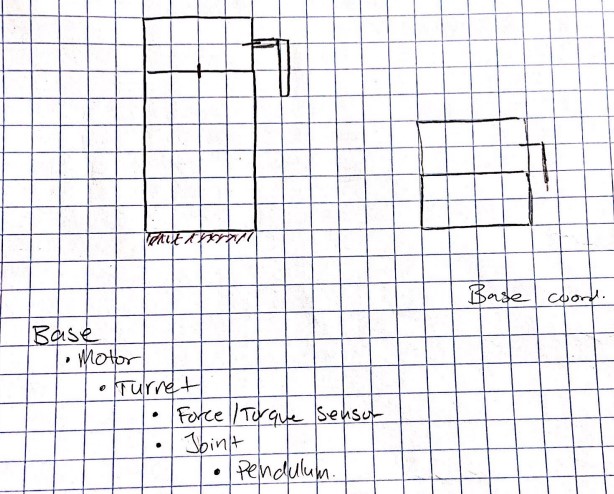 Base coord.
Base
• Motor
• Turret
• Force/Torque sensor
• Joint
• Pendulum.